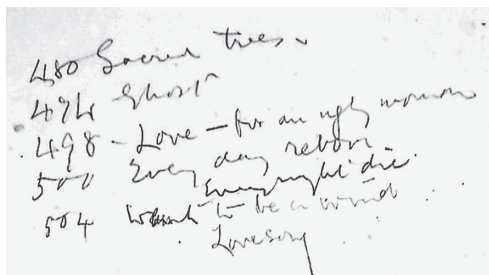 480 Sacred trees.
494 Ghost
498 - Love - for an ugly woman
500 Every day reborn
Every night die.
504 Wants to be a wind
Lovesong